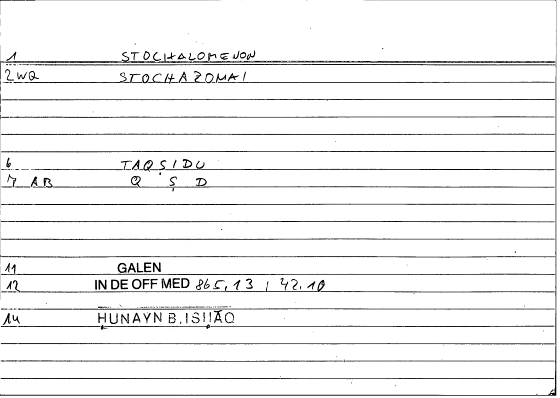 1 STOCHALOMENON
2 WQ STOCHAZOMAI
6 TAQṢIDU
7 AB Q Ṣ D
11 GALEN
12 IN DE OFF MED 865,13 / 42.10
14 ḪUNAYN B. ISḤĀQ